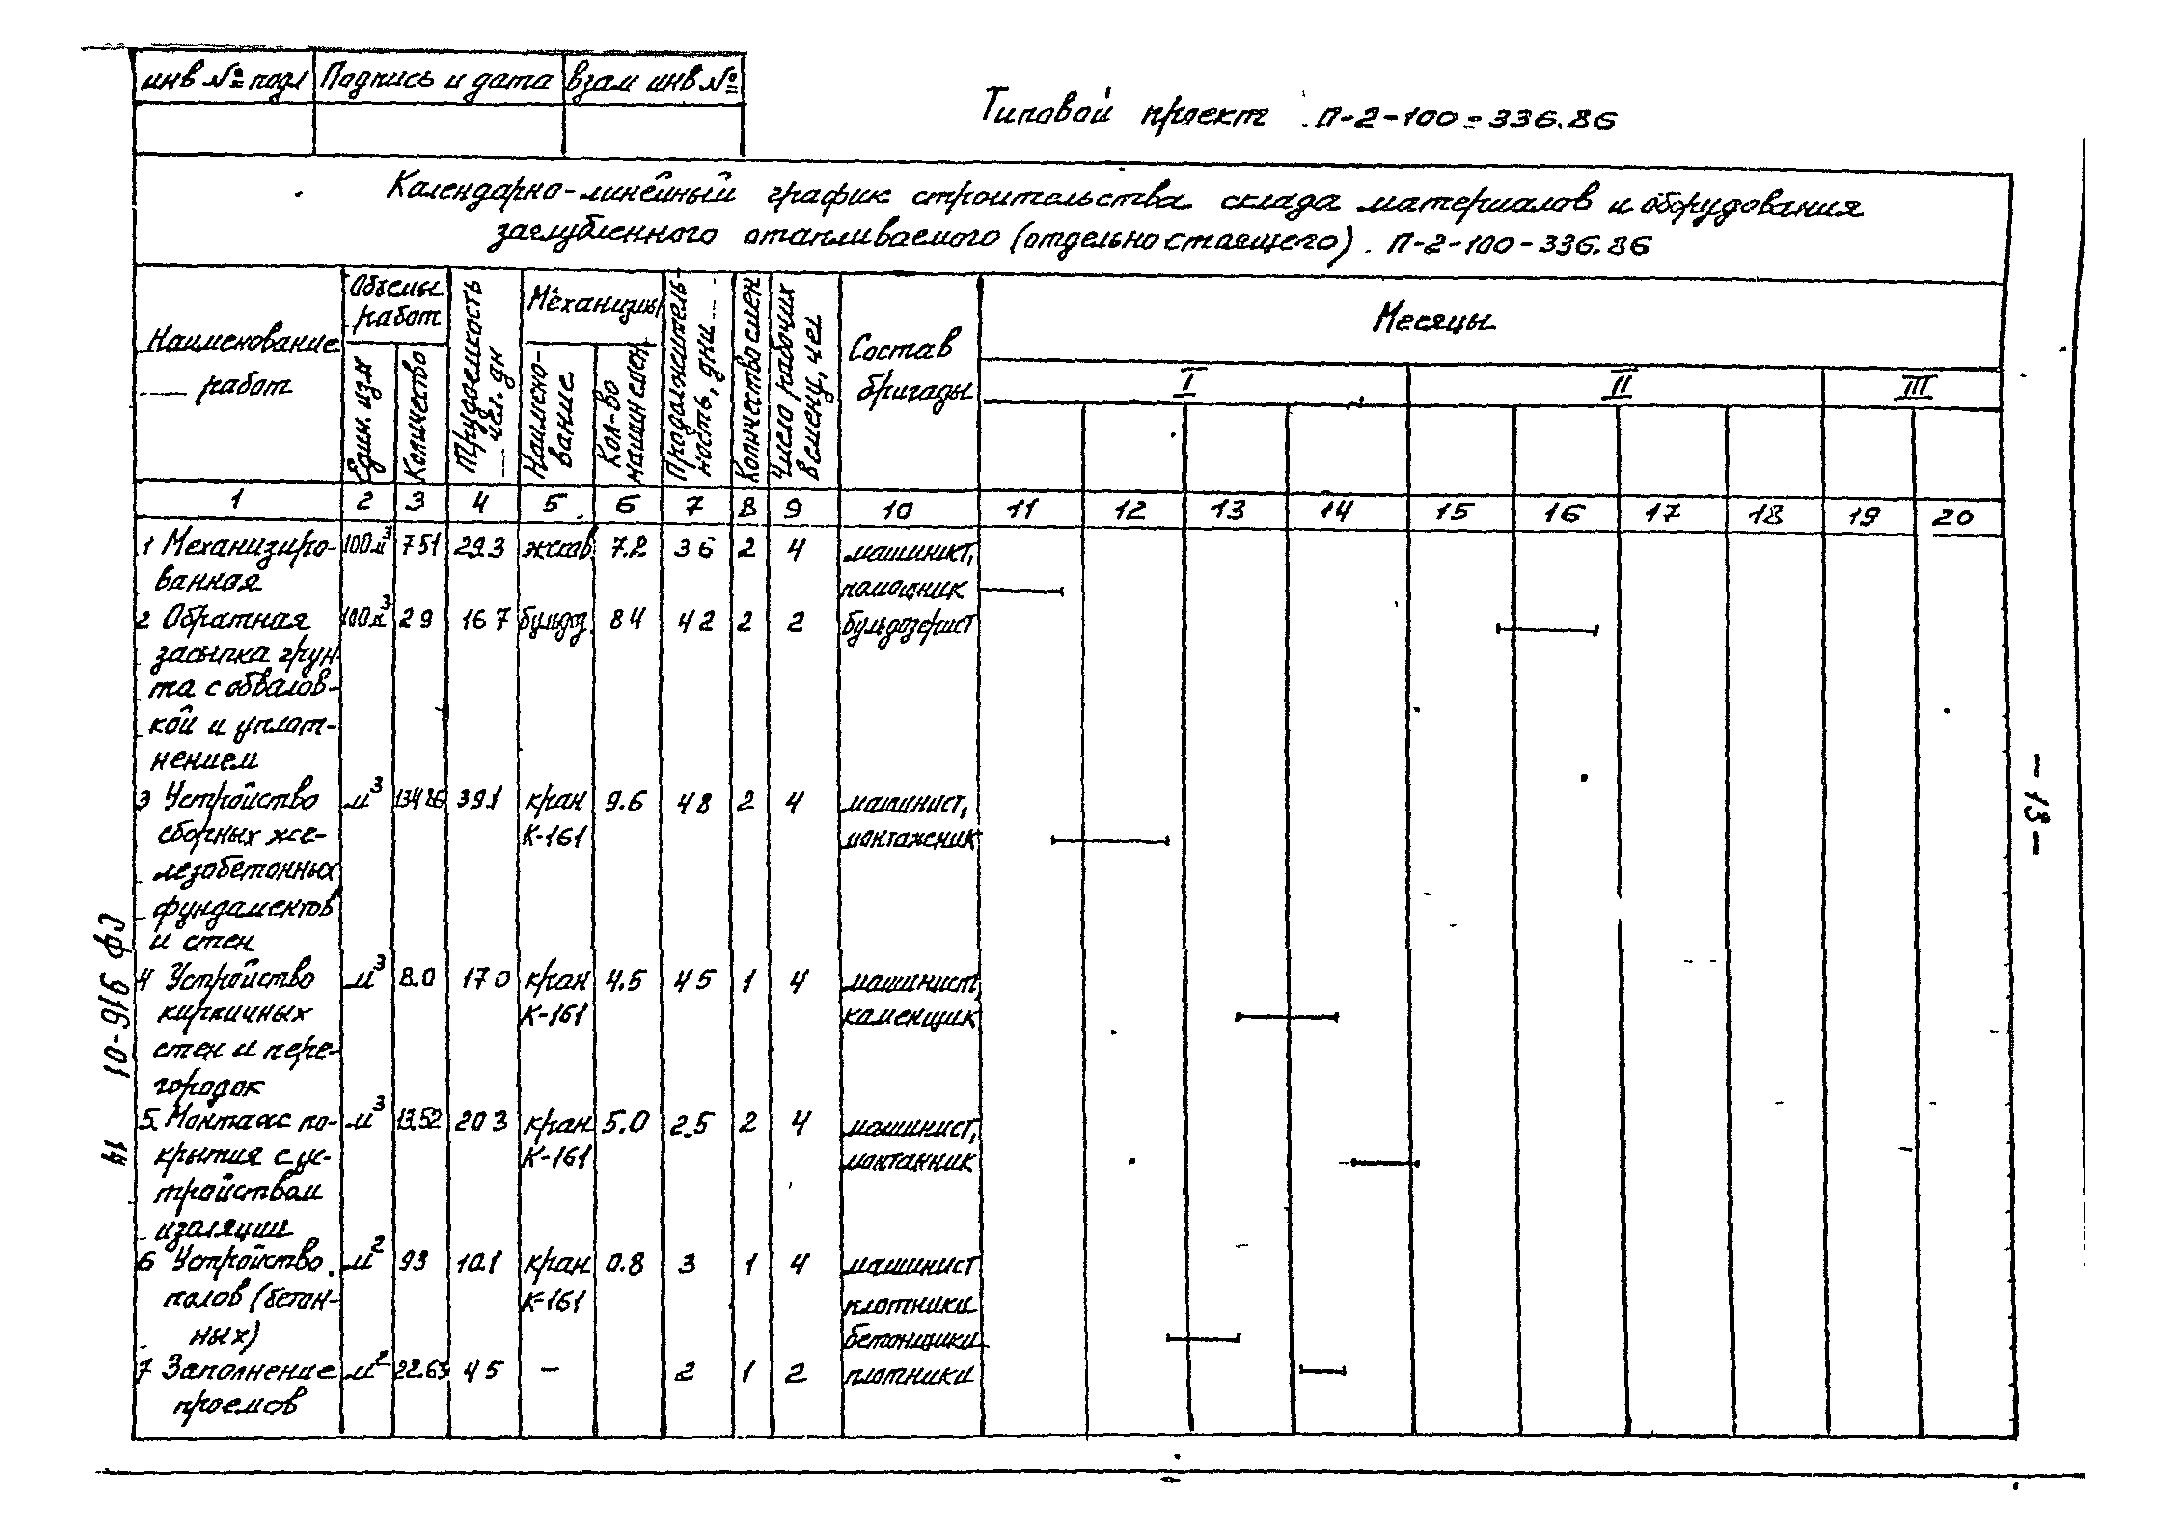 инв № подл Подпись и дата взам инв №
Типовой проект П-2-100-336.86
Календарно-линейный график строительства склада материалов и оборудования
заглубленного отапливаемого (отдельно стоящего). П-2-100-336.86
Наименование работ
Объемы работ
Един. изм
Количество
Трудоемкость чел. дн
Механизмы
Наимено-
вание
Кол-во машин смен
Продолжитель-
ность, дни
Количество смен
Число рабочих в смену, чел
Состав бригады
Месяцы
I II III
1 2 3 4 5 6 7 8 9 10 11 12 13 14 15 16 17 18 19 20
1 Механизиро- 100м³ 7.51 29.3 экскав. 7.2 3.6 2 4 машинист,
ванная помощник
2 Обратная 100м³ 29 16.7 бульдоз. 8.4 4.2 2 2 бульдозерист
засыпка грун-
та с обвалов-
кой и уплот-
нением
3 Устройство м³ 134.86 39.1 кран 9.6 4.8 2 4 машинист,
сборных же- К-161 монтажник
лезобетонных
фундаментов
и стен
4 Устройство м³ 8.0 17.0 кран 4.5 4.5 1 4 машинист,
кирпичных К-161 каменщик
стен и пере-
городок
5. Монтаж по- м³ 13.52 20.3 кран 5.0 2.5 2 4 машинист,
крытия с ус- К-161 монтажник
тройством
изоляции
6 Устройство м² 93 10.1 кран 0.8 3 1 4 машинист
полов (бетон- К-161 плотники
ных) бетонщики
7 Заполнение м² 22.63 4.5 — 2 1 2 плотники
проемов
— 13 —
14 10-916 ф3